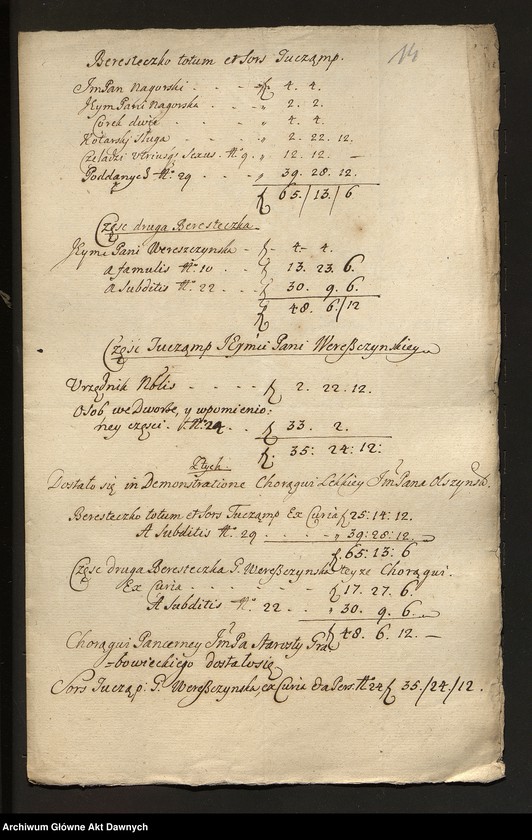 14
Beresteczko totum et Sors Tuczamp.
JmPan Nagorski . . . . ƒ. 4. 4.
JEym Pani Nagorska . . . " 2. 2.
Corek dwie . . . . " 4. 4.
Kotarskj Sługa . . . " 2. 22. 12.
Czeladzi utriusq; Sexus. No 9. " 12. 12. —
Poddanych No. 29 . . " 39. 28. 12.
ƒ 65./13./6
Częsc druga Beresteczka.
JEymć Pani Wereszczynska - ƒ. 4. 4.
a famulis No. 10 . . . ƒ 13. 23. 6.
a Subditis No. 22 . . . ƒ 30. 9. 6.
ƒ 48. 6./12
Część Tuczamp JEymći Pani Wereszczynskiey
Urzędnik Nblis . . . . . ƒ 2. 22. 12.
Osob we Dworze, y wpomienio:
ney częsci. No. 24. . . ƒ 33. 2.
ƒ. 35: 24: 12:
Ztych.
Dostało się in Demonstratione Chorągwi Lekkiey Jm Pana Olszynsk.
Beresteczko totum et Sors Tuczamp Ex Curia ƒ 25: 14: 12.
A Subditis No. 29 . . . . . " 39: 28: 12.
ƒ 65: 13: 6
Częsc druga Beresteczka G. Wereszczynska teyze Chorągwi.
Ex Curia . . . . . ƒ 17. 27. 6.
A Subditis No. 22 . . . " 30. 9. 6.
ƒ 48. 6. 12. —
Chorągwi Pancerney Jm Pa Starosty Gra
=bowieckiego dostało się
Sors Tuczap: G. Wereszczynska, ex Curia & a Pers. No 24 ƒ 35./24./12.
Archiwum Główne Akt Dawnych